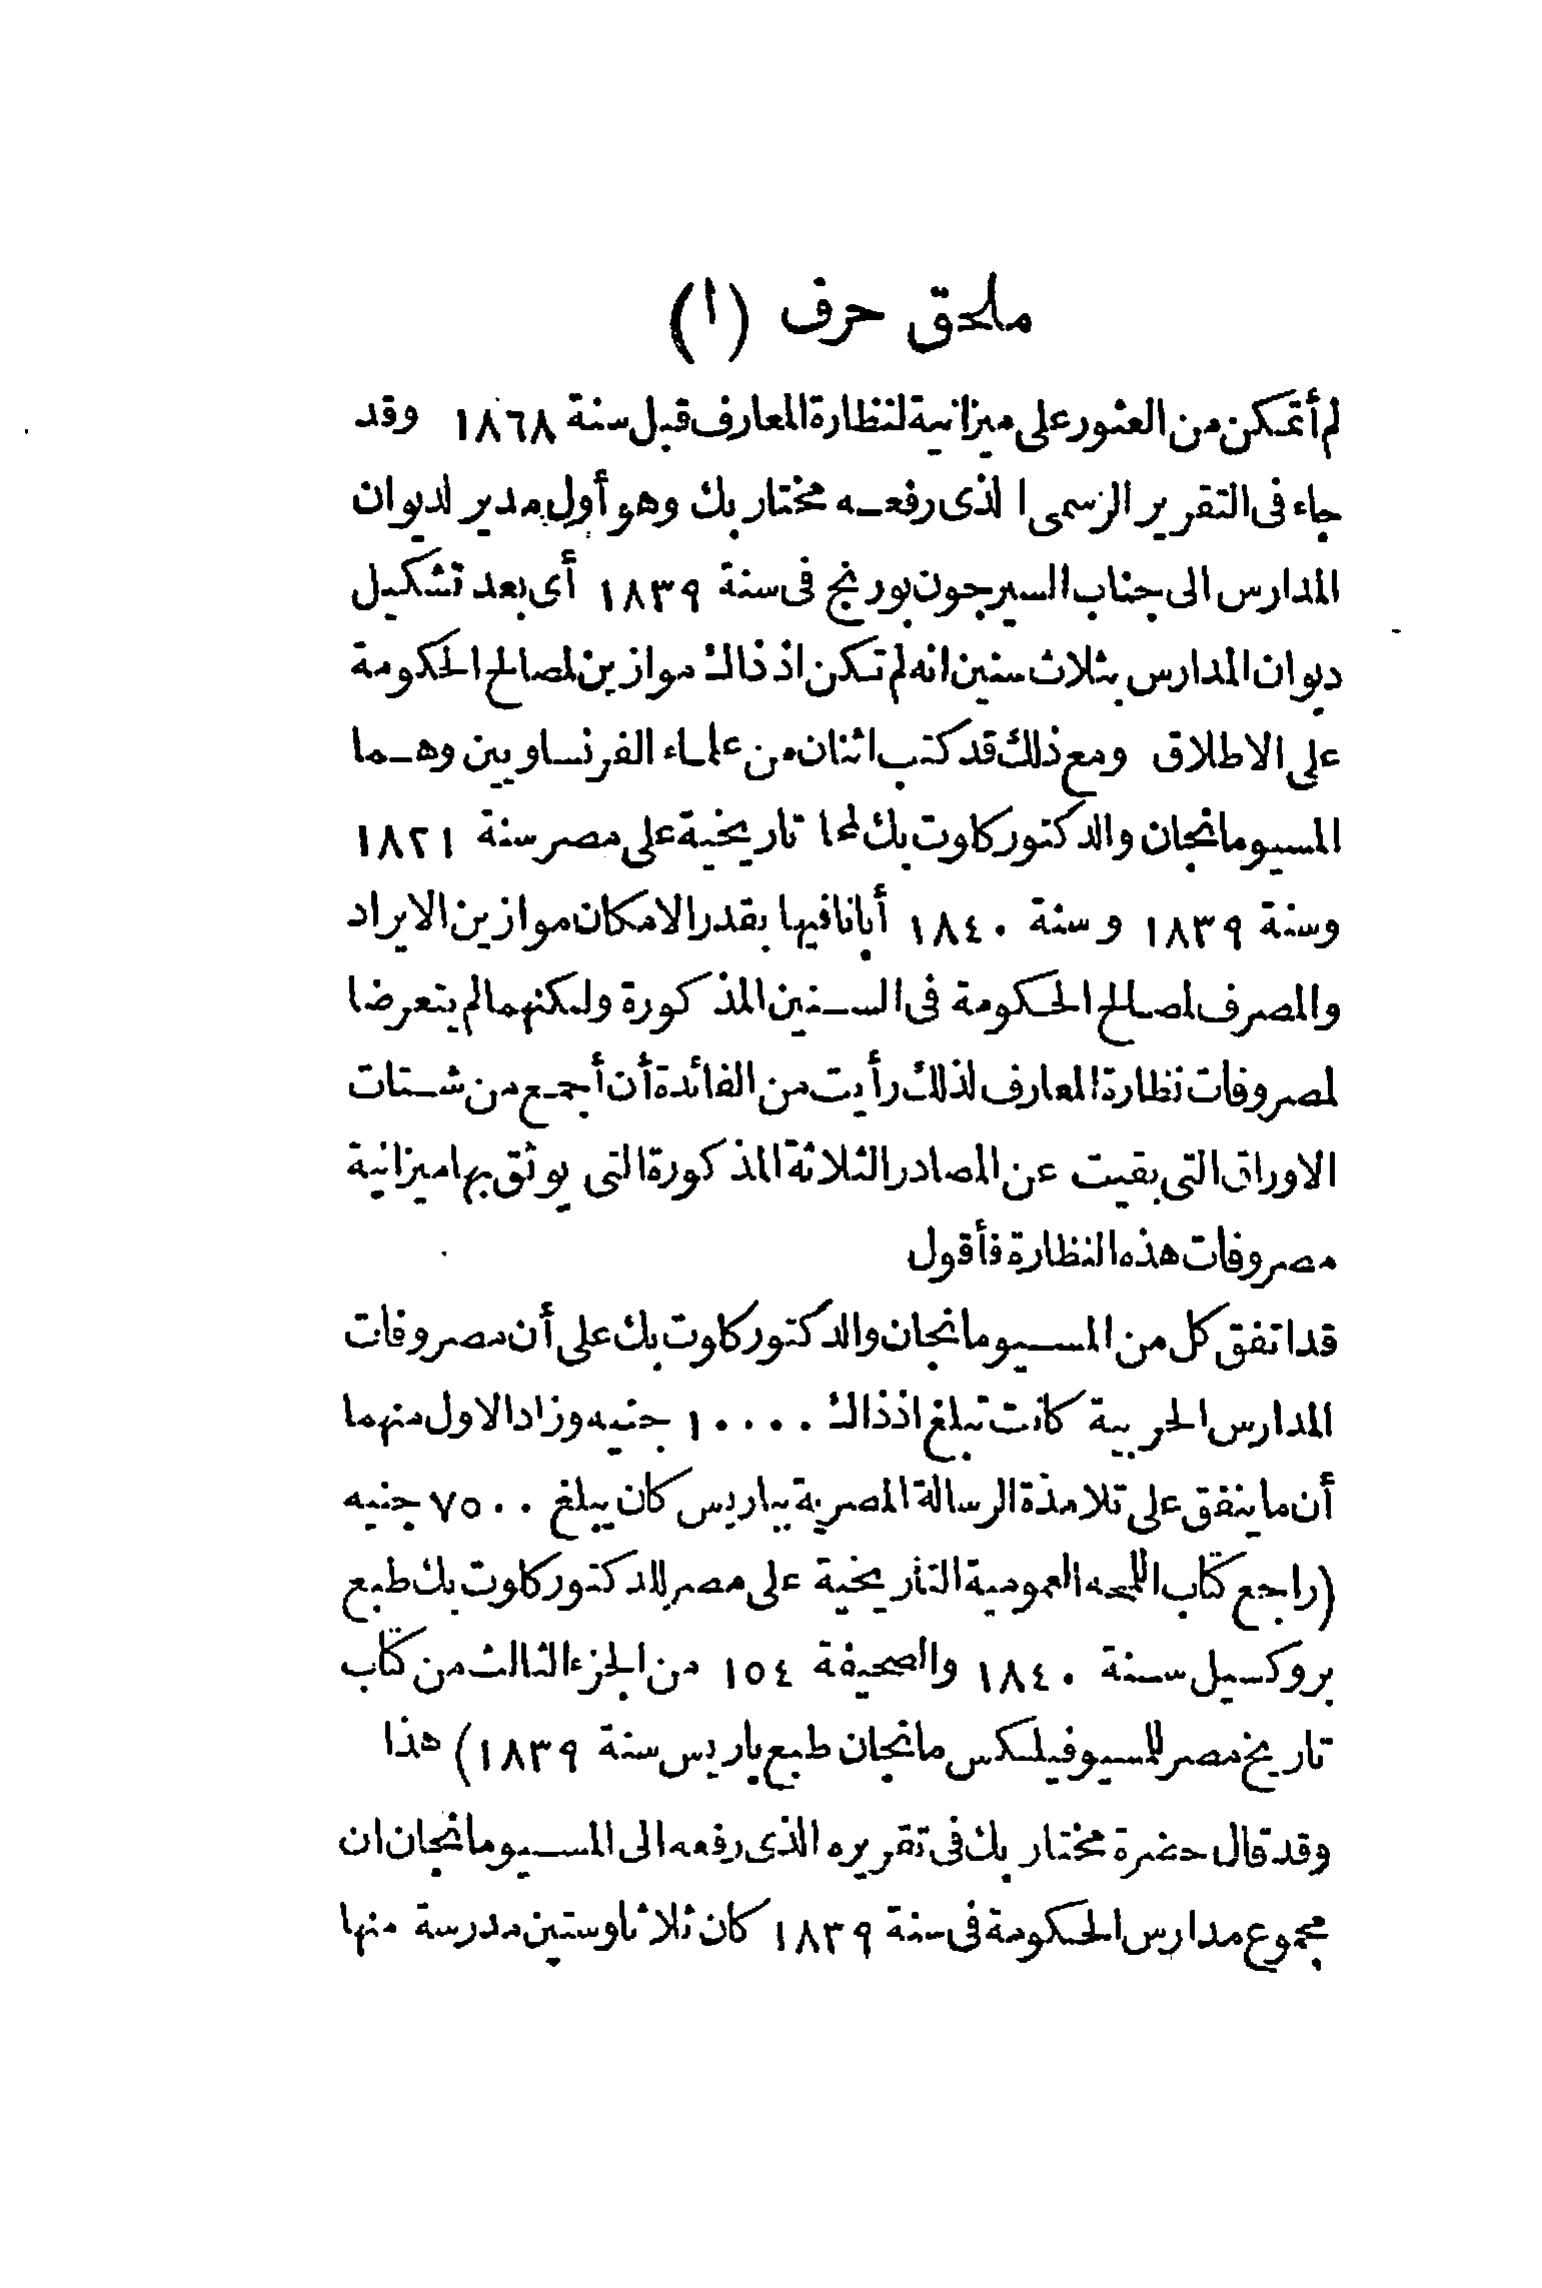 ملحق حرف (ا)
لم أتمكن من العثور على ميزانية لنظارة المعارف قبل سنة ١٨٦٨ وقد
جاء فى التقرير الرسمى الذى رفعه مختار بك وهو أول مدير لديوان
المدارس الى جناب السير جون بورنج فى سنة ١٨٣٩ أى بعد تشكيل
ديوان المدارس بثلاث سنين انه لم تكن اذ ذاك موازين لمصالح الحكومة
على الاطلاق ومع ذلك قد كتب اثنان من علماء الفرنساويين وهما
المسيو مانجان والدكتور كلوت بك لمحا تاريخية على مصر سنة ١٨٢١
وسنة ١٨٣٩ وسنة ١٨٤٠ أبانا فيها بقدر الامكان موازين الايراد
والمصرف لمصالح الحكومة فى السنين المذكورة ولكنهما لم يتعرضا
لمصروفات نظارة المعارف لذلك رأيت من الفائدة أن أجمع من شتات
الاوراق التى بقيت عن المصادر الثلاثة المذكورة التى يوثق بها ميزانية
مصروفات هذه النظارة فأقول
قد اتفق كل من المسيو مانجان والدكتور كلوت بك على أن مصروفات
المدارس الحربية كانت تبلغ اذ ذاك ١٠٠٠٠ جنيه وزاد الاول منهما
أن ما ينفق على تلامذة الرسالة المصرية بباريس كان يبلغ ٧٥٠٠ جنيه
(راجع كتاب اللمحه العمومية التاريخية على مصر للدكتور كلوت بك طبع
بروكسيل سنة ١٨٤٠ والصحيفة ١٥٤ من الجزء الثالث من كتاب
تاريخ مصر للمسيو فيلكس مانجان طبع باريس سنة ١٨٣٩) هذا
وقد قال حضرة مختار بك فى تقريره الذى رفعه الى المسيو مانجان ان
مجموع مدارس الحكومة فى سنة ١٨٣٩ كان ثلاثا وستين مدرسة منها